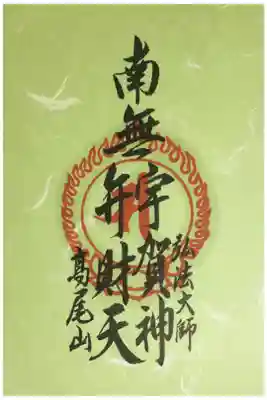 弘法大師
南無
宇賀神
弁財天
高尾山